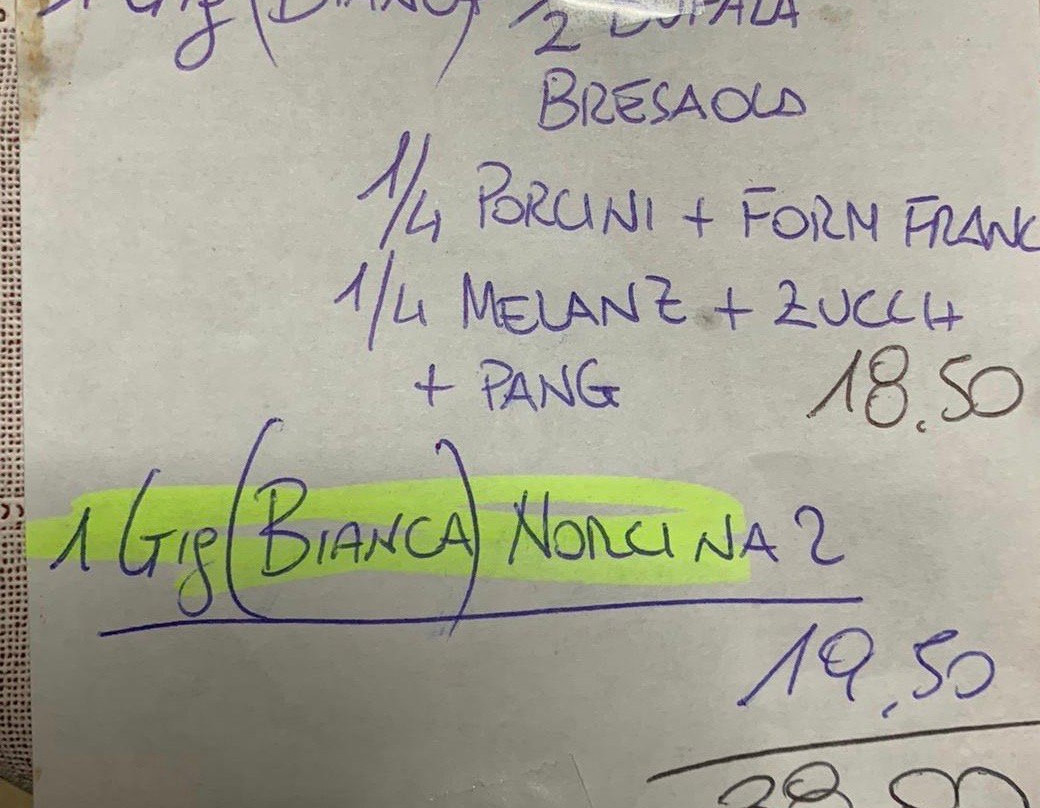 1 Gig (BIANCA) 1/2 BUFALA
BRESAOLA
1/4 PORCINI + FORM FRANC
1/4 MELANZ + ZUCCH
+ PANG
18.50
1 Gig (BIANCA) NORCINA 2
19.50